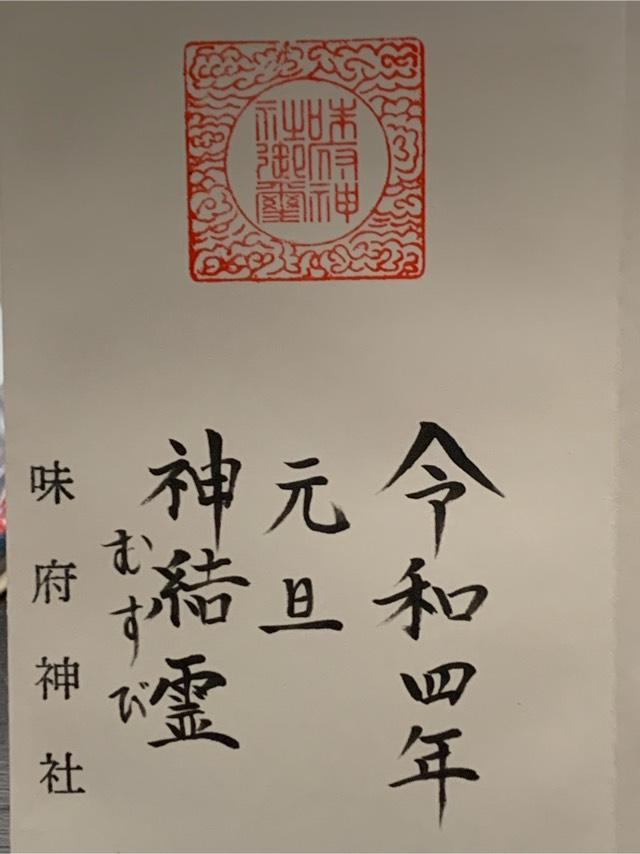 味府神
社御璽
令和四年
元旦
神結霊
むすび
味府神社